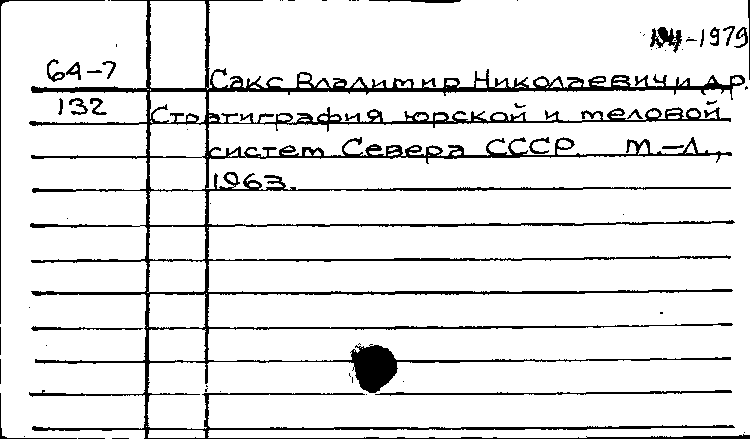 -1979
64-7 Сакс, Владимир Николаевич и др.
132 Стратиграфия юрской и меловой
систем Севера СССР. М.-Л.,
1963.